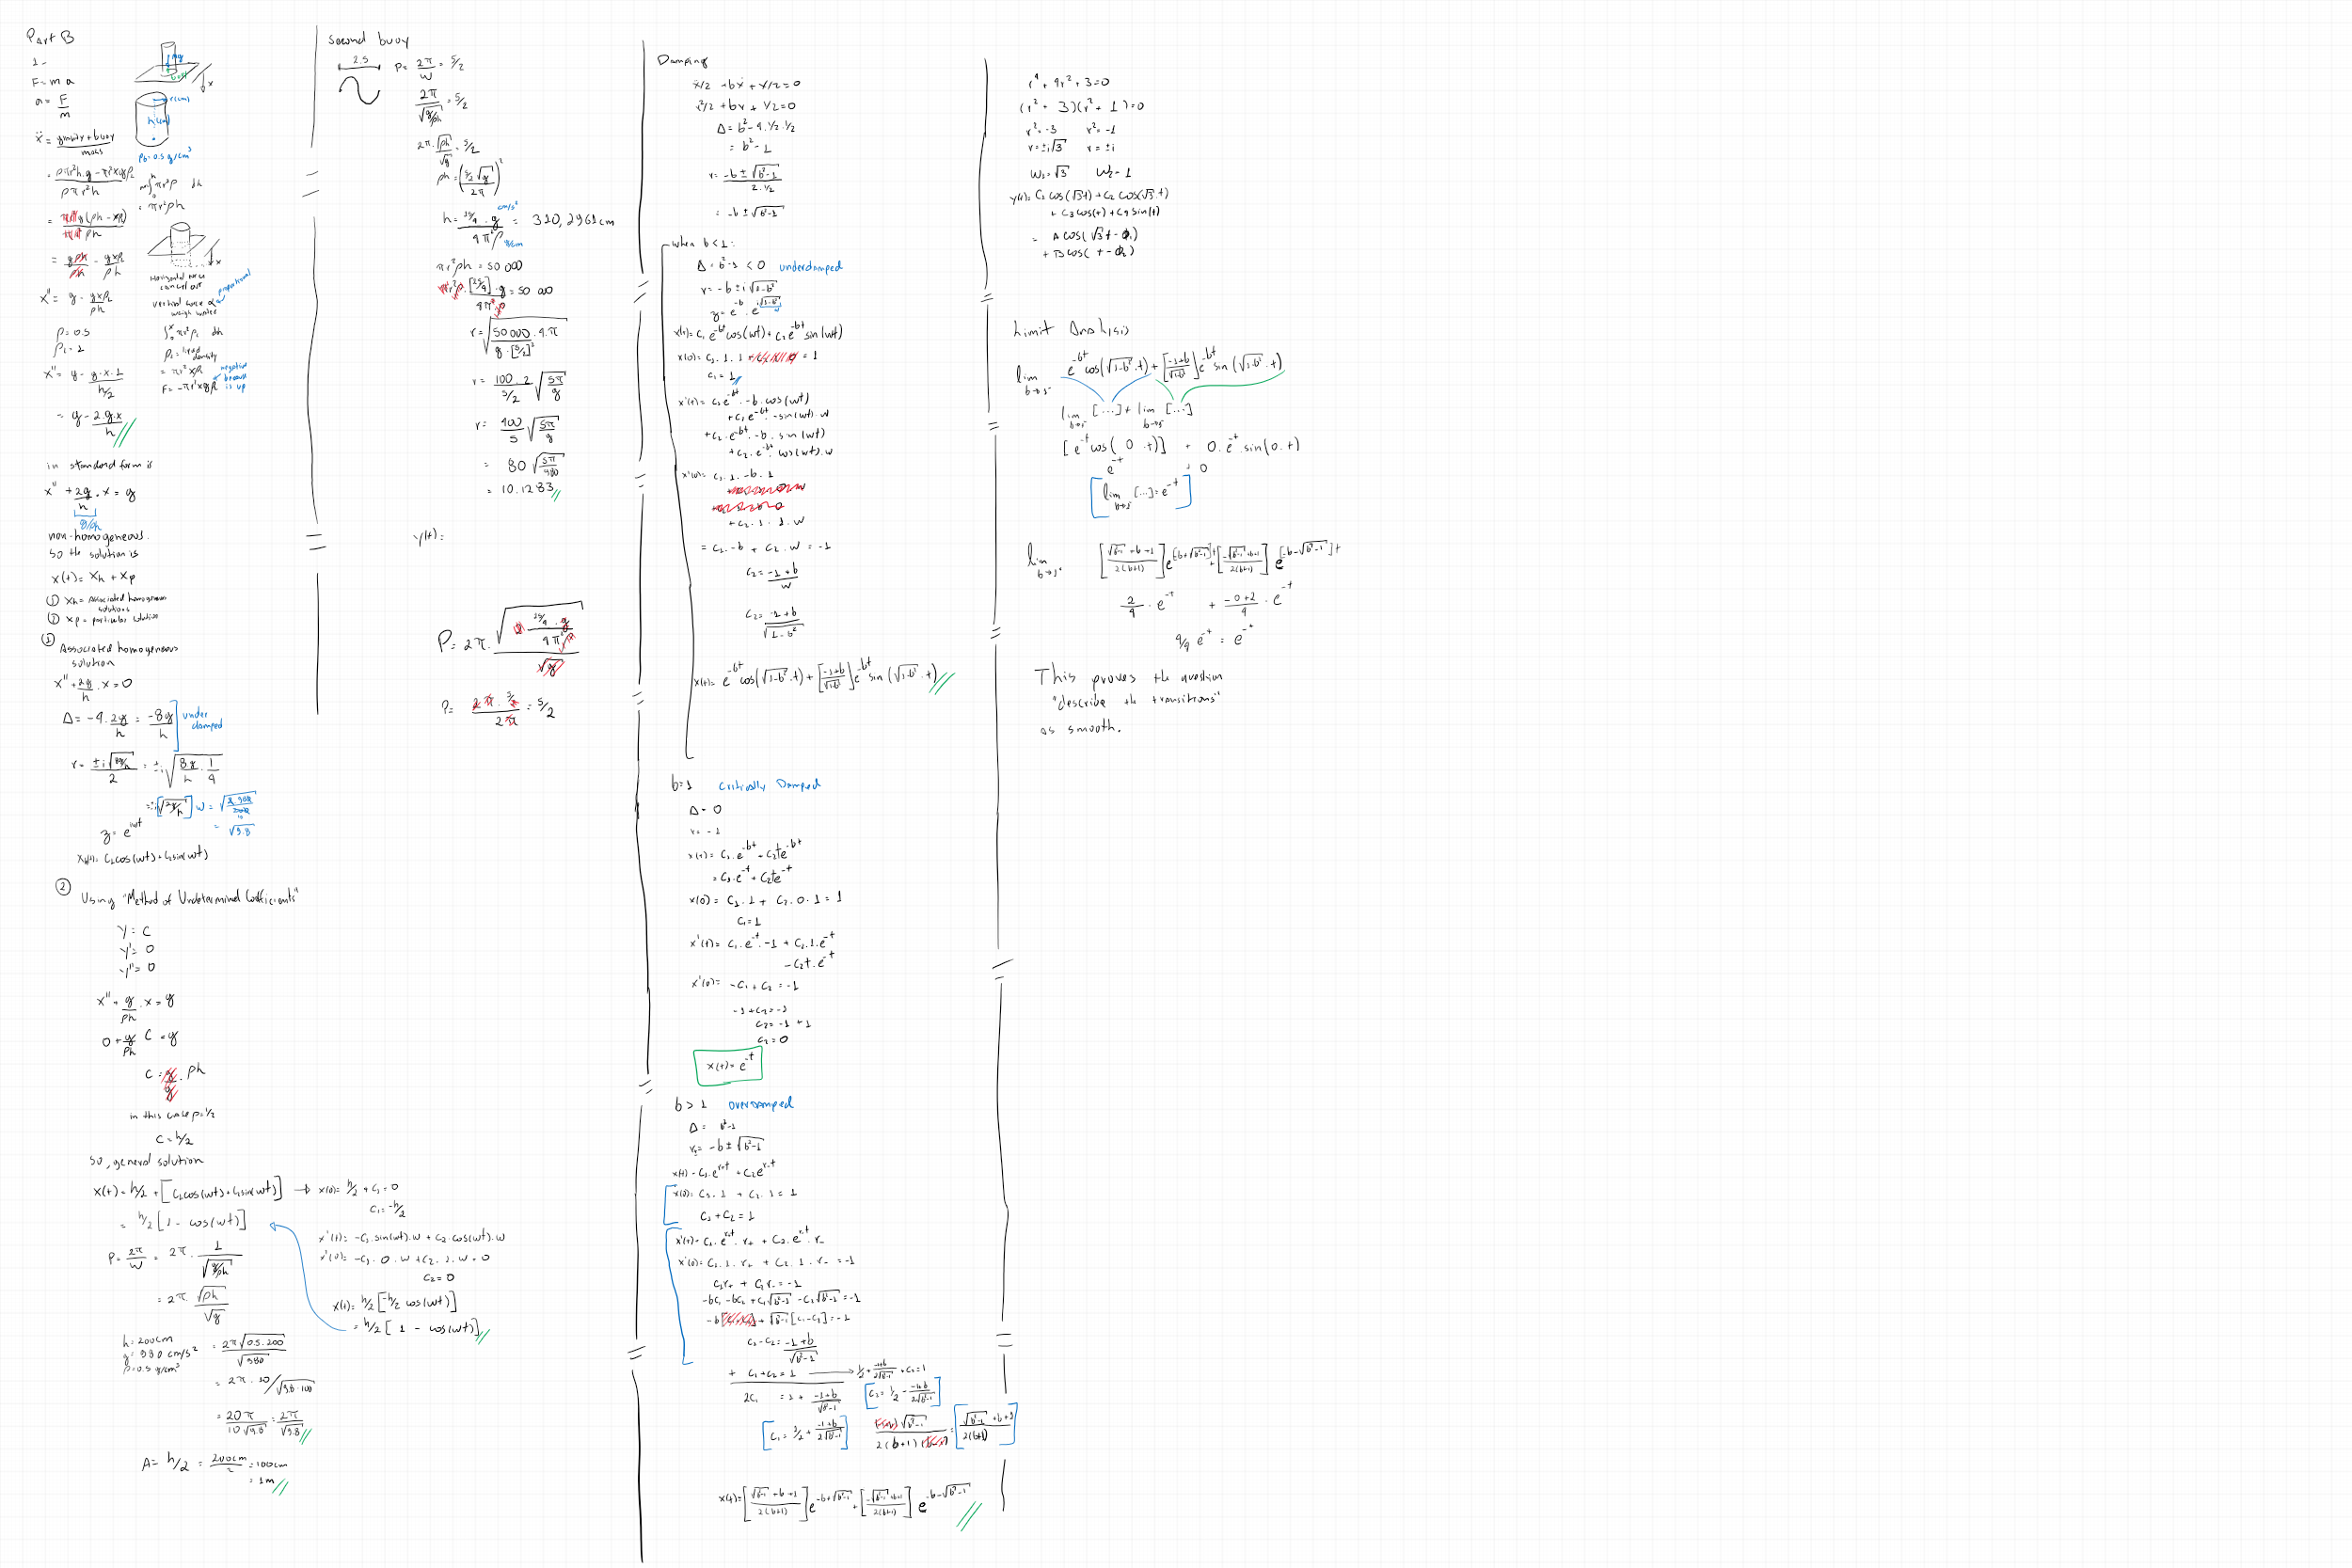 Part B
1-
F = m a
a = F/m
ẍ = gravity + buoy / mass
= ρπr²h.g - πr²xgρ₁ / ρπr²h
m = ∫₀ʰ πr²ρ dh
= πr²ρh
ρb = 0.5 g/cm³
x'' = g - gxρ₁/ρh
ρ = 0.5
ρ₁ = 1
x'' = g - g.x.1 / h/2
= g - 2.g.x / h
horizontal force
cancel out
vertical force α
proportional
weigh water
∫₀ˣ πr²ρ₁ dh
ρ₁ = liquid density
= πr² xρ₁
F = -πr²xgρ₁
negative
because
is up
in standard form is
x'' + 2g/h . x = g
g/ρh
non-homogeneous.
so the solution is
x(t) = xh + xp
① xh = Associated homogeneous
solutions
② xp = particular solution
① Associated homogeneous
solution
x'' + 2g/h . x = 0
Δ = -4.2g/h = -8g/h
under
damped
r = ±i√8g/h / 2 = ±i √(8g/h . 1/4)
= ±i[√2g/h] w =
√9.8
z = e^iwt
xh(t) = c₁cos(wt) + c₂sin(wt)
② Using "Method of Undetermined Coefficients"
y = c
y' = 0
y'' = 0
x'' + g/ρh . x = g
0 + g/ρh C = g
C = g/g . ρh
in this case ρ = 1/2
C = h/2
so, general solution
x(t) = h/2 + [c₁cos(wt) + c₂sin(wt)] → x(0) = h/2 + c₁ = 0
c₁ = -h/2
= h/2 [1 - cos(wt)]
x'(t) = -c₁.sin(wt).w + c₂.cos(wt).w
x'(0) = -c₁.0.w + c₂.1.w = 0
c₂ = 0
x(t) = h/2 [-h/2 cos(wt)]
= h/2 [1 - cos(wt)]
P = 2π/w = 2π . 1/√(g/ρh)
= 2π . √ρh / √g
h = 200cm
g = 980 cm/s²
ρ = 0.5 g/cm³
= 2π√0.5.200 / √980
= 2π.10/√9.8.100
= 20π / 10√9.8 = 2π / √9.8
A = h/2 = 200cm/2 = 100cm
= 1m
second buoy
2.5
P = 2π/w = 5/2
2π / √(g/ρh) = 5/2
2π . √ρh / √g = 5/2
ρh = (5/2 √g / 2π)²
h = 25/4 . g / 4π²ρ = 310,2961cm
cm/s²
πr²ρh = 50 000
πr²ρ . [25/4] . g / 4π²ρ = 50 000
r = √(50 000 . 4.π / g.[5/2]²)
r = 100.2 / 5/2 √(5π/g)
r = 400/5 √(5π/g)
= 80 √(5π/980)
= 10.1283
y(t) =
P = 2π . √(25/4 . g / 4π²) / √g
P = 2π . 5/2 / 2π = 5/2
Damping
ẍ/2 + bẋ + x/2 = 0
r²/2 + br + 1/2 = 0
Δ = b² - 4.1/2.1/2
= b² - 1
r = -b ± √b²-1 / 2.1/2
= -b ± √b²-1
when b < 1:
Δ = b² - 1 < 0 underdamped
r = -b ± i√1-b²
z = e^-b . e^i√1-b²
x(t) = c₁ e^-bt cos(wt) + c₂ e^-bt sin(wt)
x(0) = c₁.1.1 = 1
c₁ = 1
x'(t) = c₁e^-bt . -b.cos(wt)
+ c₁e^-bt . -sin(wt).w
+ c₂.e^-bt . -b.sin(wt)
+ c₂.e^-bt . cos(wt).w
x'(0) = c₁.1.-b.1
+ c₂.1.1.w
= c₁.-b + c₂.w = -1
c₂ = -1+b / w
c₂ = -1+b / √1-b²
x(t) = e^-bt cos(√1-b² .t) + [-1+b / √1-b²] e^-bt sin(√1-b² .t)
b = 1 Critically Damped
Δ = 0
r = -1
x(t) = c₁.e^-bt + c₂te^-bt
= c₁.e^-t + c₂te^-t
x(0) = c₁.1 + c₂.0.1 = 1
c₁ = 1
x'(t) = c₁.e^-t . -1 + c₂.1.e^-t
- c₂t.e^-t
x'(0) = -c₁ + c₂ = -1
-1 + c₂ = -1
c₂ = -1 + 1
c₂ = 0
x(t) = e^-t
b > 1 overdamped
Δ = b²-1
r± = -b ± √b²-1
x(t) = c₁.e^r+t + c₂e^r-t
x(0) = c₁.1 + c₂.1 = 1
c₁ + c₂ = 1
x'(t) = c₁.e^r+t . r+ + c₂.e^r-t . r-
x'(0) = c₁.1.r+ + c₂.1.r- = -1
c₁r+ + c₂r- = -1
-bc₁ - bc₂ + c₁√b²-1 - c₂√b²-1 = -1
-b[c₁+c₂] + √b²-1 [c₁-c₂] = -1
c₁-c₂ = -1+b / √b²-1
+ c₁+c₂ = 1 → 1/2 + -1+b / 2√b²-1 + c₂ = 1
2c₁ = 1 + -1+b / √b²-1
[c₂ = 1/2 - -1+b / 2√b²-1]
[c₁ = 1/2 + -1+b / 2√b²-1]
√b²-1 / 2(b+1) = [√b²-1 + b+1 / 2(b+1)]
x(t) = [√b²-1 + b+1 / 2(b+1)] e^-b+√b²-1 + [-√b²-1 + b+1 / 2(b+1)] e^-b-√b²-1
r⁴ + 4r² + 3 = 0
(r² + 3)(r² + 1) = 0
r² = -3 r² = -1
r = ±i√3 r = ±i
w₁ = √3 w₂ = 1
y(t) = c₁ cos(√3t) + c₂ cos(√3.t)
+ c₃ cos(t) + c₄ sin(t)
= A cos(√3t - φ₁)
+ B cos(t - φ₂)
Limit Analysis
lim b→1⁻ e^-bt cos(√1-b² .t) + [-1+b / √1-b²] e^-bt sin(√1-b² .t)
lim b→1⁻ [...] + lim b→1⁻ [...]
[e^-t cos(0.t)] + 0.e^-t.sin(0.t)
e^-t + 0
[lim b→1⁻ [...] = e^-t]
lim b→1⁺ [√b²-1 + b+1 / 2(b+1)] e^[-b+√b²-1]t + [-√b²-1 + b+1 / 2(b+1)] e^[-b-√b²-1]t
2/4 . e^-t + -0+2/4 . e^-t
4/4 e^-t = e^-t
This proves the question
"describe the transitions"
as smooth.